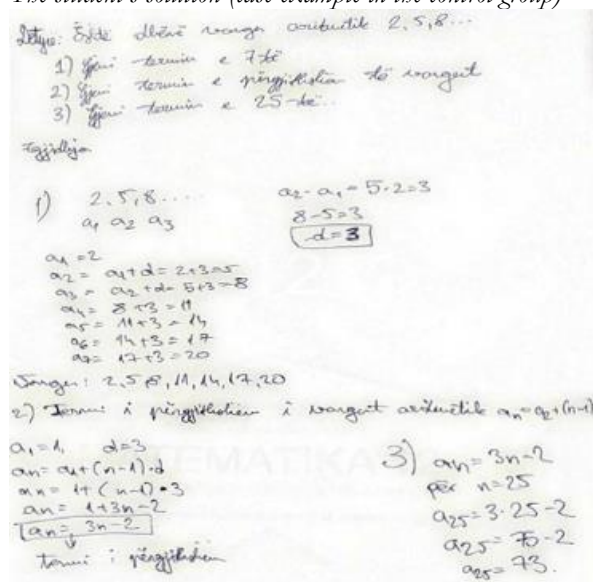 The student's solution (take example in the control group)
Detyre: Është dhënë vargu aritmetik 2,5,8...
1) Gjeni termin e 7-të
2) Gjeni termin e përgjithshëm të vargut
3) Gjeni termin e 25-të..
Zgjidhja
1) 2,5,8....
a₁ a₂ a₃
a₂-a₁=5-2=3
8-5=3
d=3
a₁=2
a₂= a₁+d=2+3=5
a₃= a₂+d=5+3=8
a₄= 8+3=11
a₅= 11+3=14
a₆= 14+3=17
a₇= 17+3=20
Vargu: 2,5,8,11,14,17,20
2) Termi i përgjithshëm i vargut aritmetik
a₁=1, d=3
an=a₁+(n-1)·d
an=1+(n-1)•3
an=1+3n-2
an=3n-2
termi i përgjithshëm
3) an=3n-2
për n=25
a₂₅=3·25-2
a₂₅=75-2
a₂₅=73.